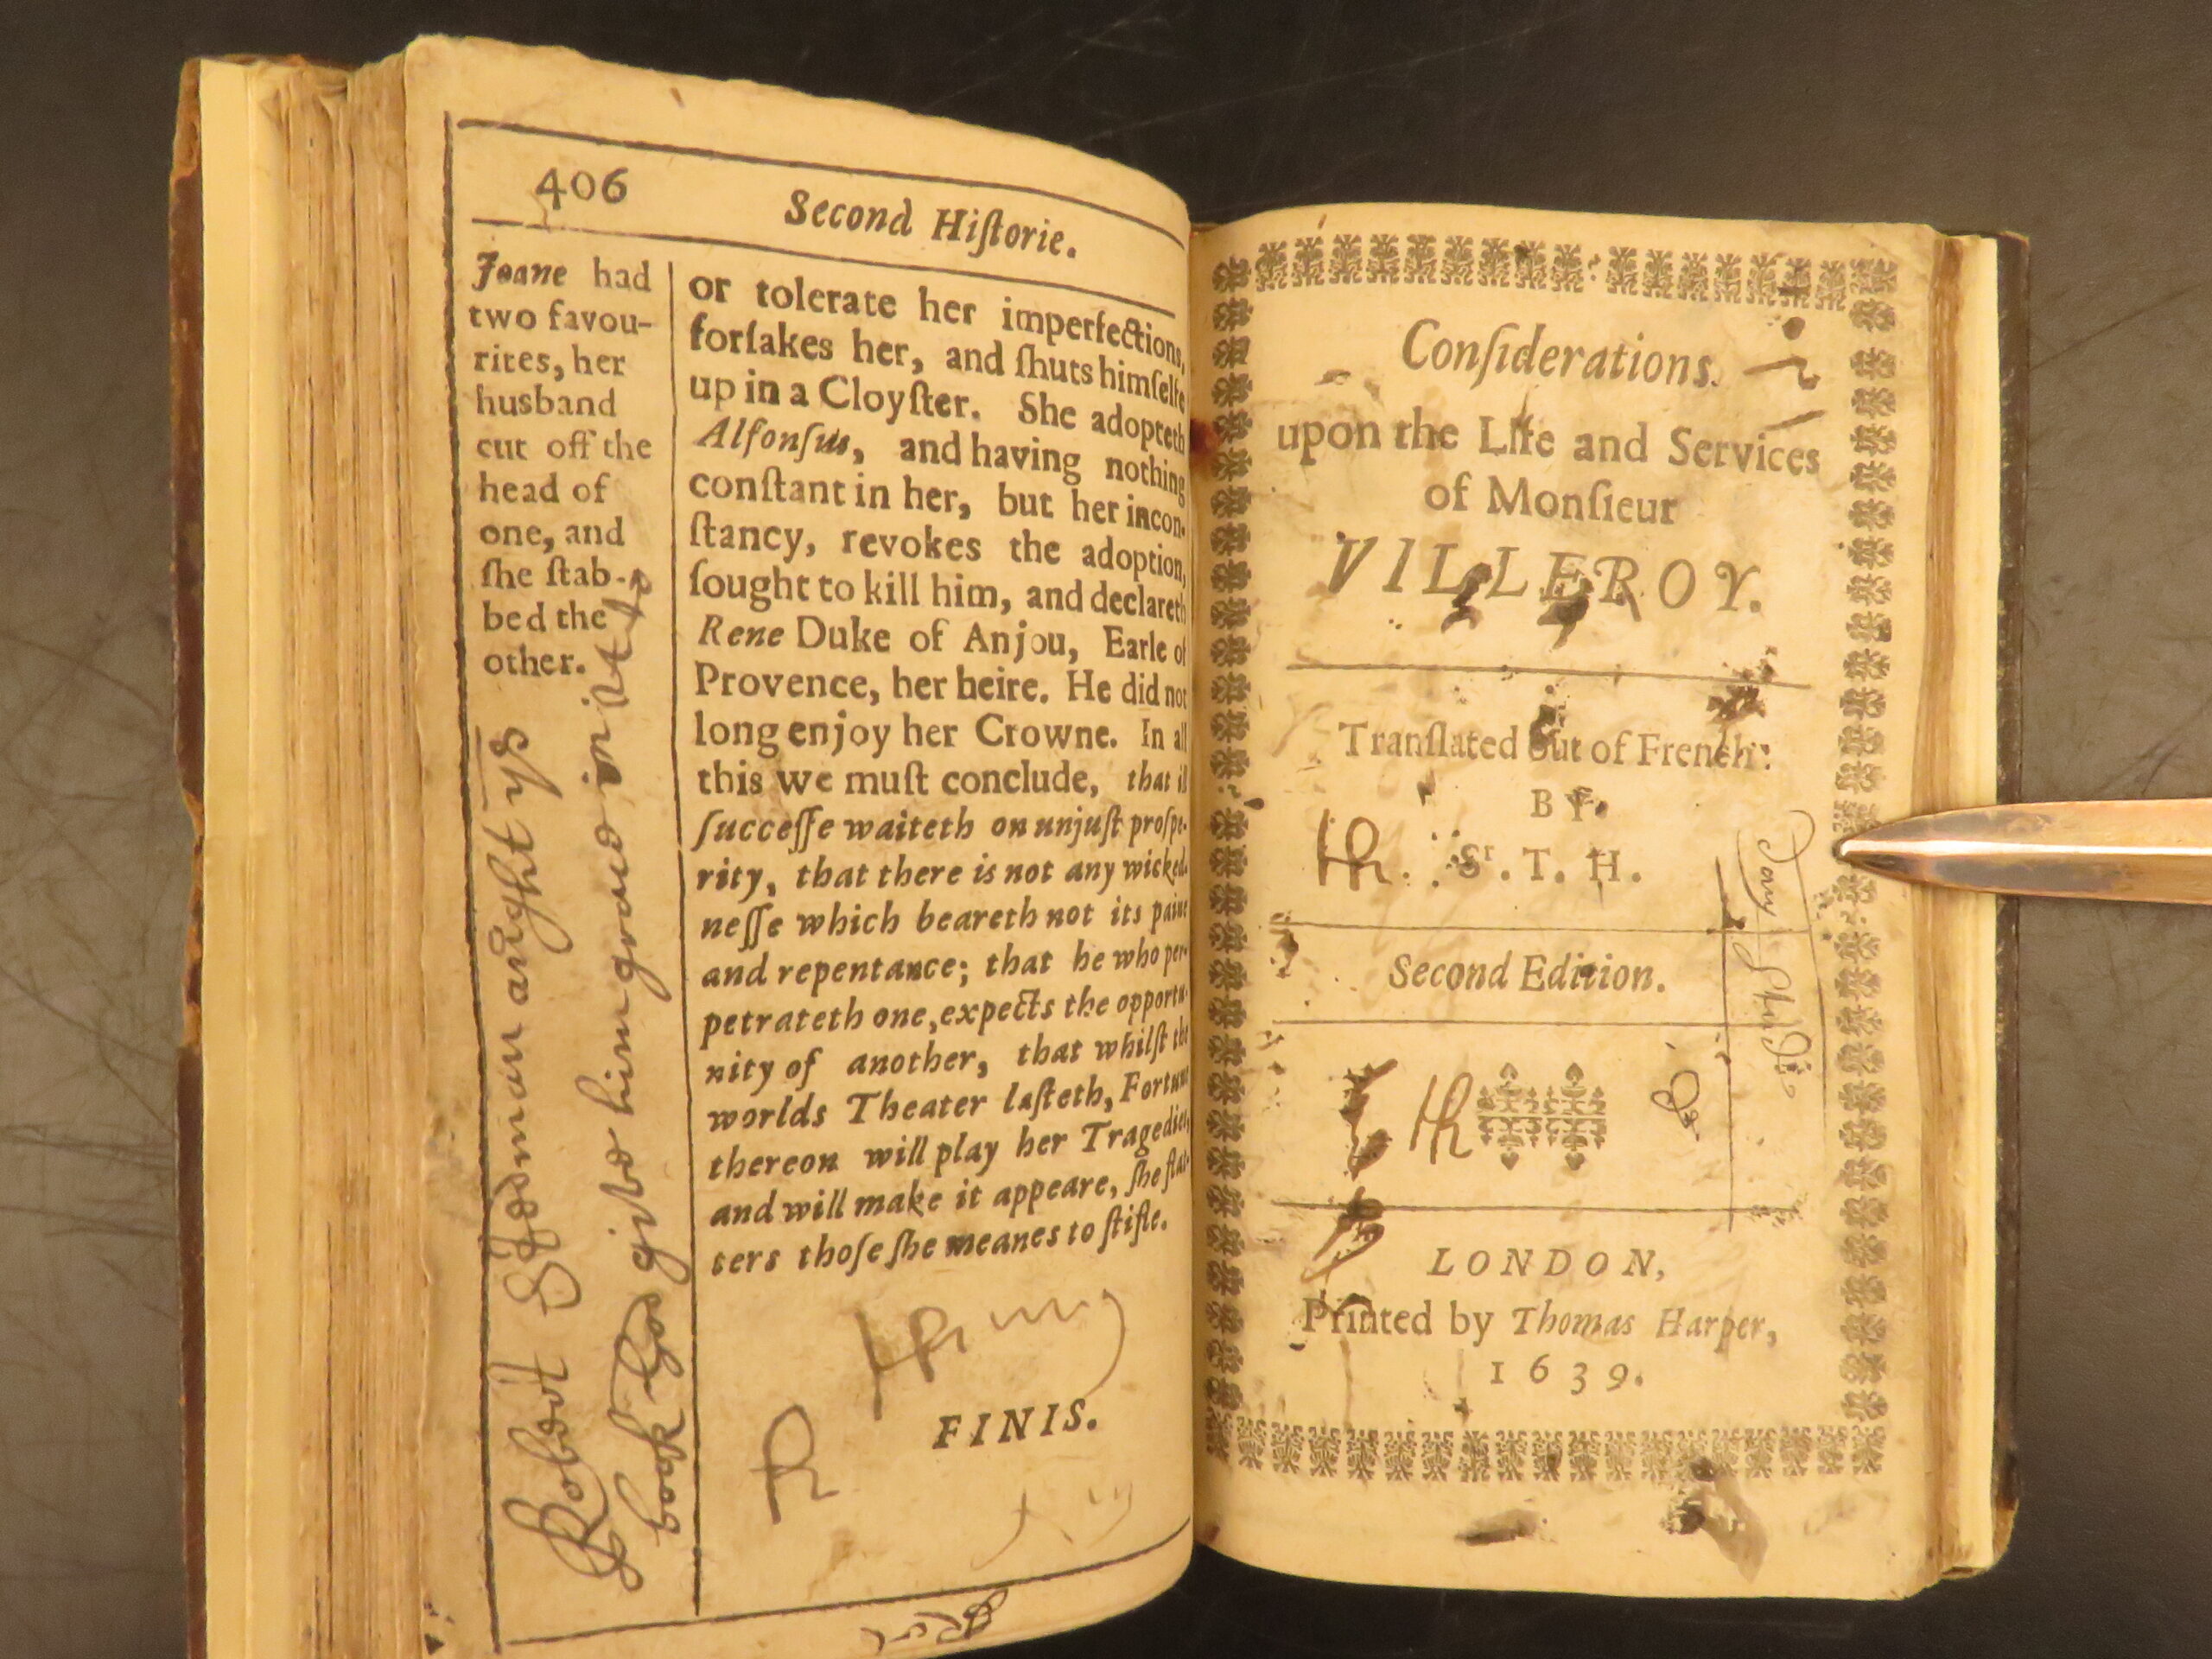 406
Second Hiſtorie.
Joane had
two favou-
rites, her
husband
cut off the
head of
one, and
ſhe ſtab-
bed the
other.
or tolerate her imperfections,
forſakes her, and ſhuts himſelfe
up in a Cloyſter. She adopteth
Alfonſus, and having nothing
conſtant in her, but her incon-
ſtancy, revokes the adoption,
ſought to kill him, and declareth
Rene Duke of Anjou, Earle of
Provence, her heire. He did not
long enjoy her Crowne. In all
this we muſt conclude, that ill
ſucceſſe waiteth on unjuſt proſpe-
rity, that there is not any wicked-
neſſe which beareth not its paine
and repentance; that he who per-
petrateth one, expects the opportu-
nity of another, that whilſt the
worlds Theater laſteth, Fortune
thereon will play her Tragedies,
and will make it appeare, ſhe flat-
ters thoſe ſhe meanes to ſtifle.
FINIS.
Robert Stedman aught ys
book God give him grace in it to
Conſiderations.
upon the Life and Services
of Monſieur
VILLEROY.
Tranſlated out of French:
BY.
Sr. T. H.
Second Edition.
LONDON,
Printed by Thomas Harper,
1639.